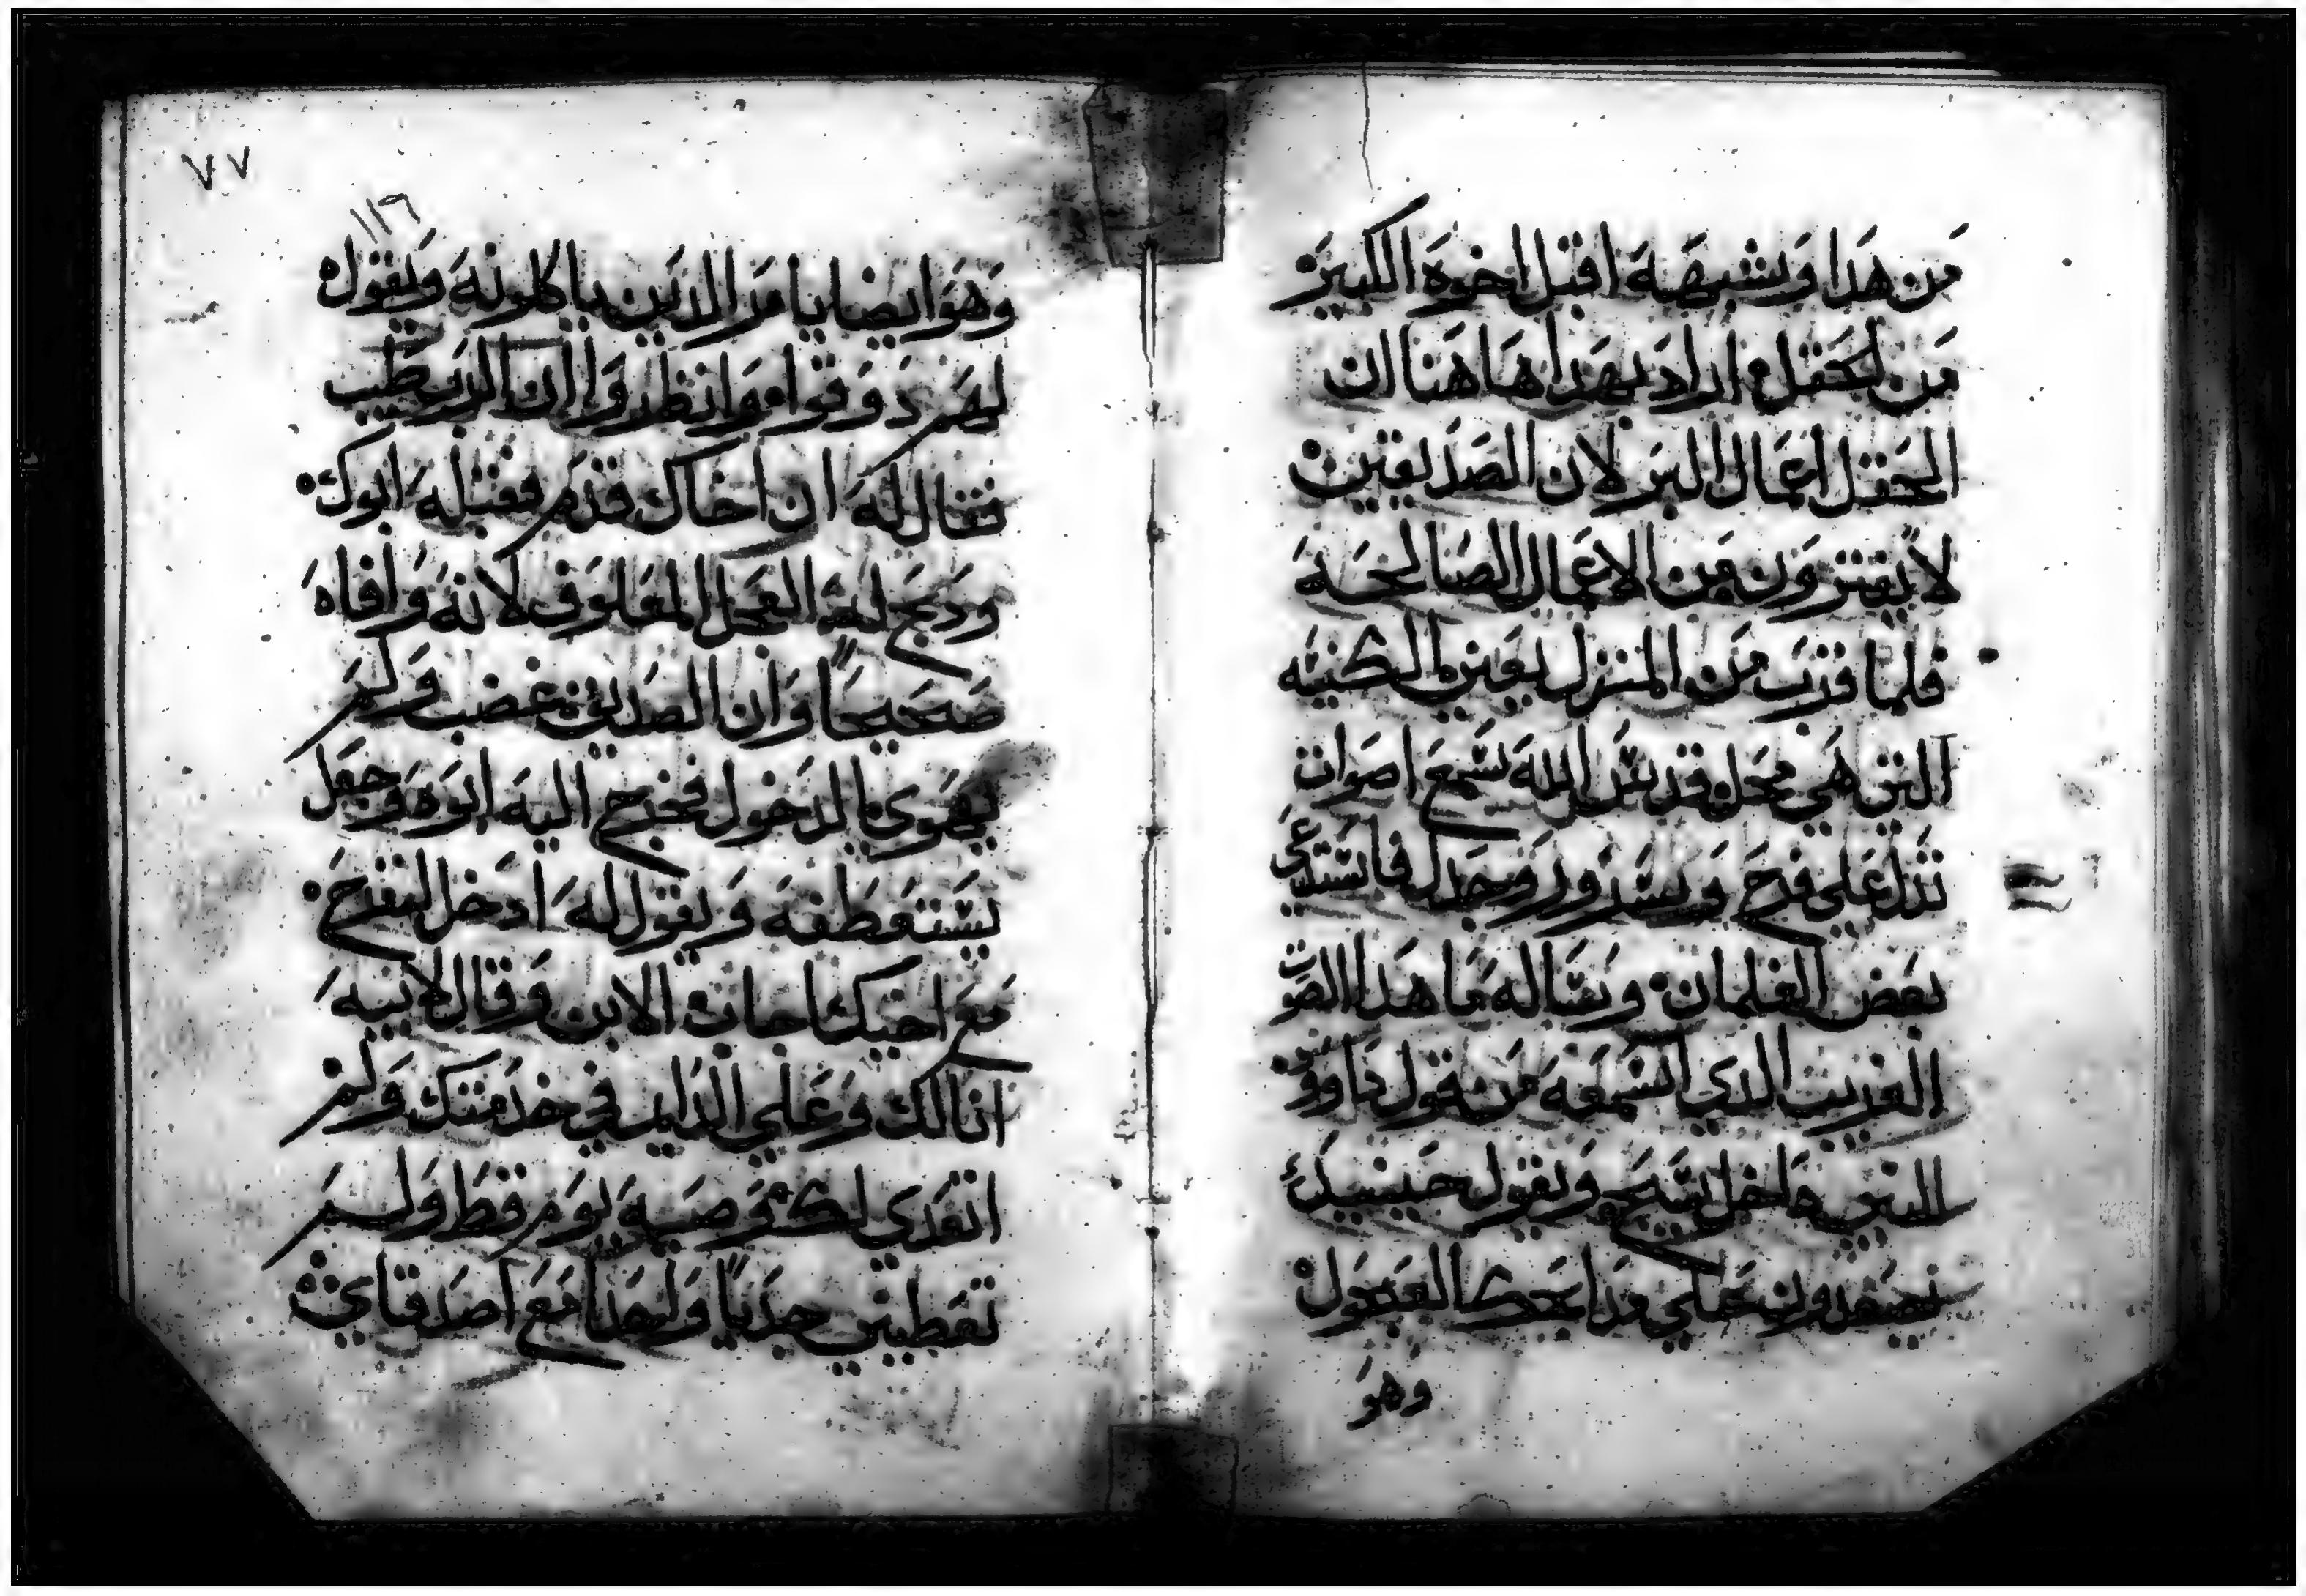 من هدا ويشبهه اقبل اخوه الكبير
من الحقل اراد بهدا هاهنا ان
الحقل اعمال البر لان الصديقين
لا يفترون من الاعمال الصالحه
فلما قرب من المنزل يعني الكنيسه
التي هي محل قدس الله سمع اصوات
تدل علي فرح وسرور وجدل فاستدعي
بعض الغلمان وساله ما هدا الصوت
الغريب الدي اسمعه من يقول داوود
النبي داخل يسبح ويقول حينيد
يصعدون علي مدابحك العجول
وهو
٧٧
١١٦
وهو ايضا يامر الدين ياكلونه ويقول
لهم دوقوا وانظروا ان الرب طيب
فقال له ان اخاك قدم فقبله ابوك
ودبح له العجل المعلوف لانه وافاه
صحيحا وان الصديق غضب ولم
يهوي الدخول فخرج اليه ابوه وجعل
يستعطفه ويقول له ادخل لتفرح
مع اخيك اجاب الابن وقال لابيه
انا لك وعلي الدايم في خدمتك ولم
اتعدي لك وصيه يوم قط ولم
تعطيني جديا واحدا مع اصدقاي